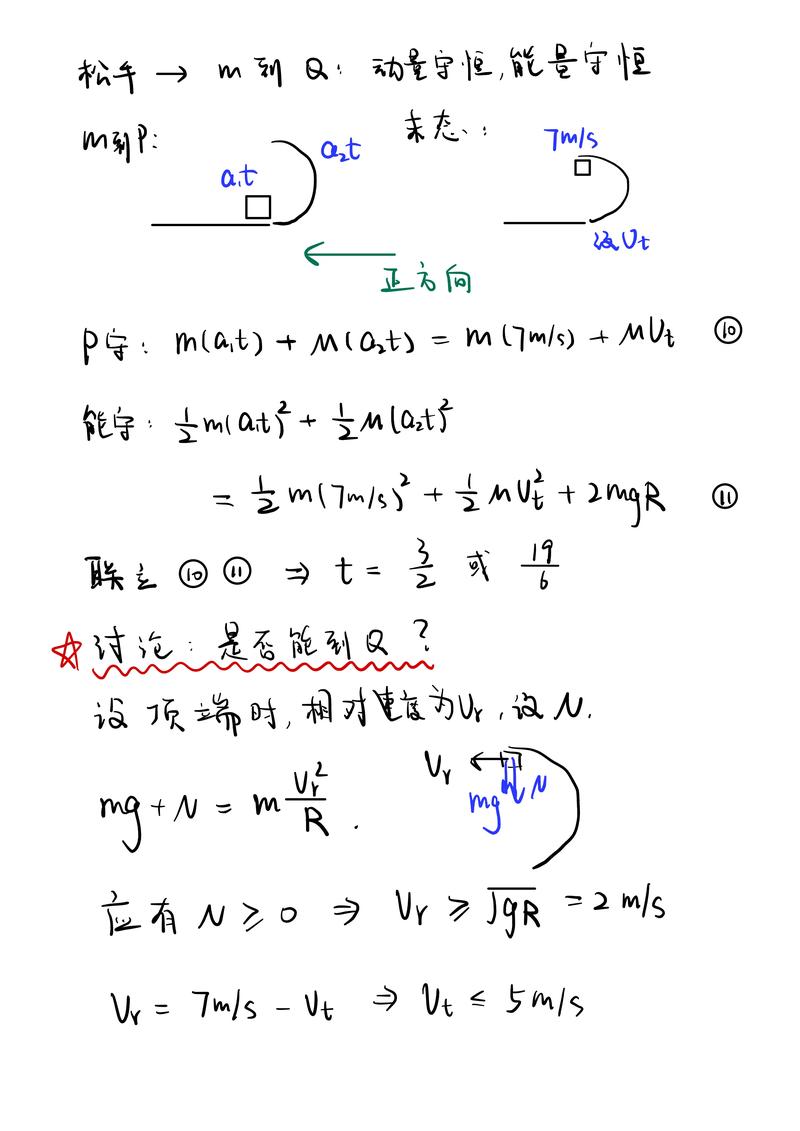 松手 → m 到 Q: 动量守恒,能量守恒
m到P:
末态:
a₁t
a₂t
7m/s
设Vt
正方向
P守: m(a₁t) + M(a₂t) = m(7m/s) + MVt ⑩
能守: 1/2 m(a₁t)² + 1/2 M(a₂t)²
= 1/2 m(7m/s)² + 1/2 MVt² + 2mgR ⑪
联立 ⑩ ⑪ ⇒ t = 3/2 或 19/6
☆ 讨论: 是否能到Q?
设顶端时,相对速度为Vr,设N.
mg + N = m Vr²/R .
Vr
mg
N
应有 N ≥ 0 ⇒ Vr ≥ √gR = 2 m/s
Vr = 7m/s - Vt ⇒ Vt ≤ 5m/s